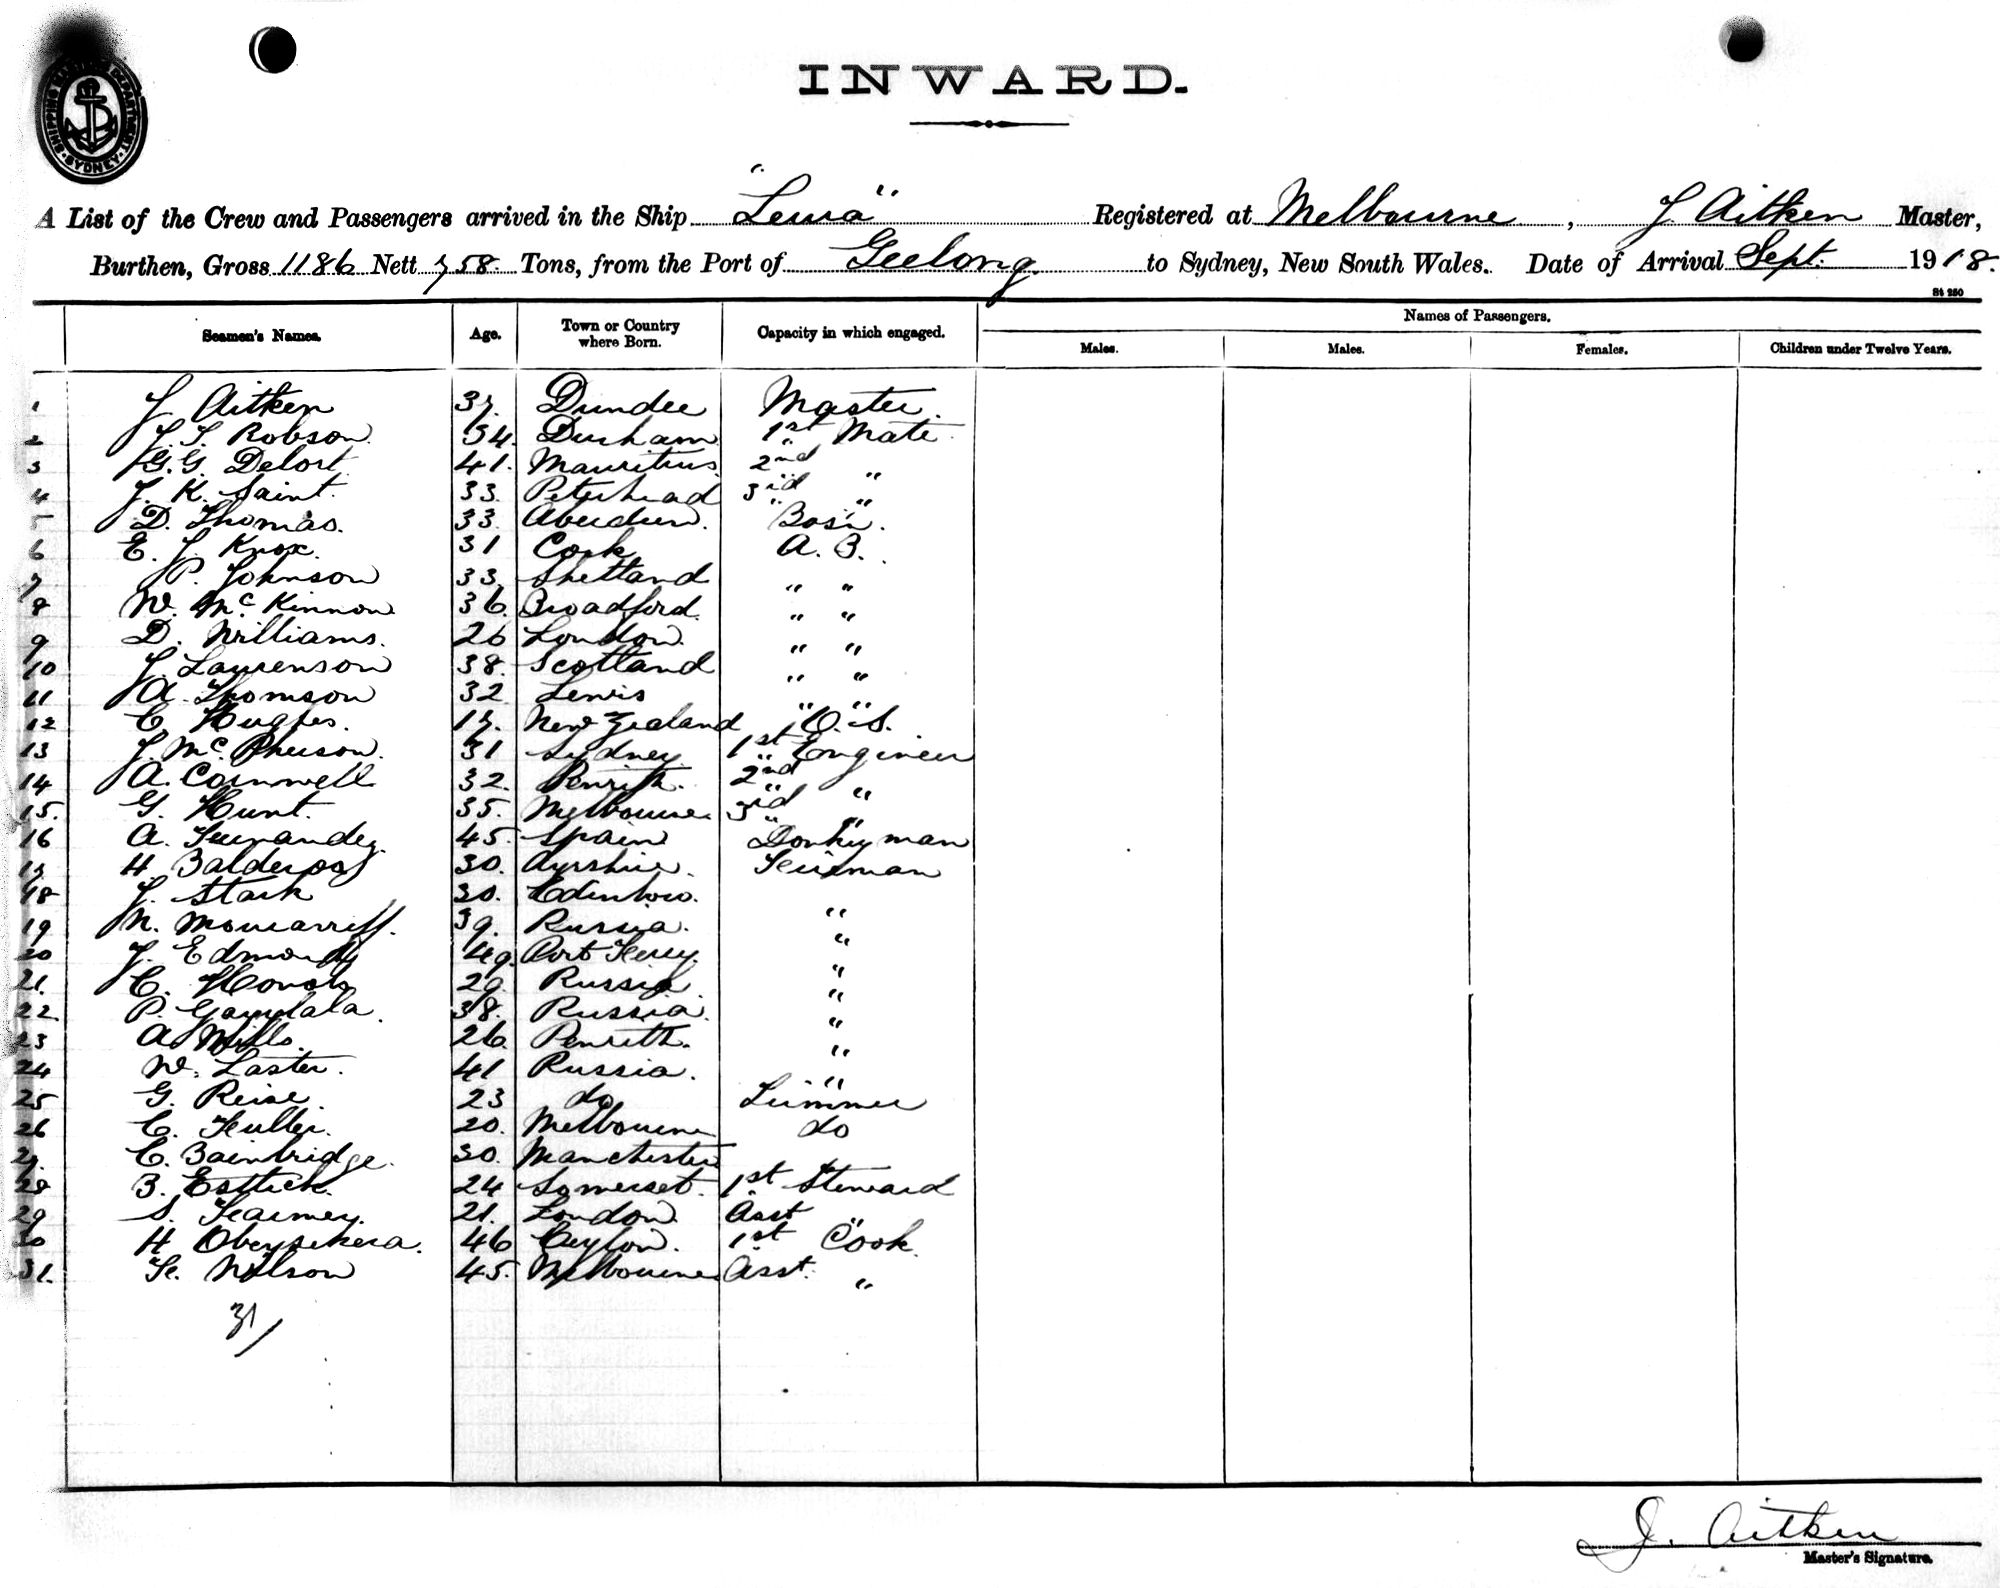 SHIPPING MASTER'S DEPARTMENT · SYDNEY ·
INWARD.
A List of the Crew and Passengers arrived in the Ship "Lewa" Registered at Melbourne, J Aitken Master,
Burthen, Gross 1186 Nett 758. Tons, from the Port of Geelong to Sydney, New South Wales. Date of Arrival Sept. 1918.
St 250
Seamen's Names. Age. Town or Country where Born. Capacity in which engaged. Names of Passengers.
Males. Males. Females. Children under Twelve Years.
1 J Aitken 37. Dundee Master.
2 J. S. Robson. 34. Durham 1st Mate
3 G. G. Delort. 41. Mauritius. 2nd "
4 J. K. Saint. 33. Peterhead 3rd "
5 D. Thomas. 33. Aberdeen. Bosn.
6 E. J. Knox. 31 Cork A. B.
7 P. Johnson 33. Shetland " "
8 W. McKinnon 36. Broadford. " "
9 D. Williams. 26 London. " "
10 J. Laurenson 38. Scotland " "
11 A. Thomson 32 Lewis " "
12 C Hughes. 17. New Zealand O. S.
13 J. McPherson. 31 Sydney 1st Engineer
14 A. Cornwell 32. Penrith. 2nd "
15. G. Hunt. 35. Melbourne. 3rd "
16 A. Fernandez. 45. Spain Donkeyman
17. H. 30. Ayrshire. Fireman
18 J. Stark 30. Edinboro. "
19 N. 39. Russia. "
20 J. Edmonds 49. Port Ferry. "
21. C. 29. Russia "
22. P. 38. Russia. "
23 A Mills. 26. Penrith. "
24 W. Laster. 41 Russia. "
25 G. Reise. 23 do Trimmer
26 C. Fuller. 20. Melbourne do
27. C. Bainbridge. 30. Manchester
28 B. Esttick. 24 Somerset. 1st Steward
29 S. 21. London Asst "
30 H Obeysekera. 46 Ceylon. 1st Cook.
31. F. Nilson 45. Melbourne Asst. "
31/
J. Aitken
Master's Signature.